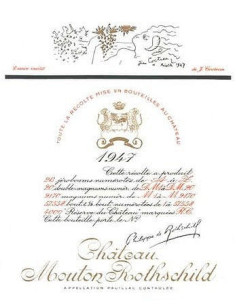 Jean Cocteau
Août 1947
Dessin inédit
de J. Cocteau
TOUTE LA RÉCOLTE MISE EN BOUTEILLES AU CHÂTEAU
1947
Cette récolte a produit
jéroboams numérotés de
double magnums numér. de
magnums numér. de
numérotées de
Réserve du Château marquées R.C.
Cette bouteille porte le N°
Philippe de Rothschild
Château
Mouton Rothschild
APPELLATION PAUILLAC CONTRÔLÉE